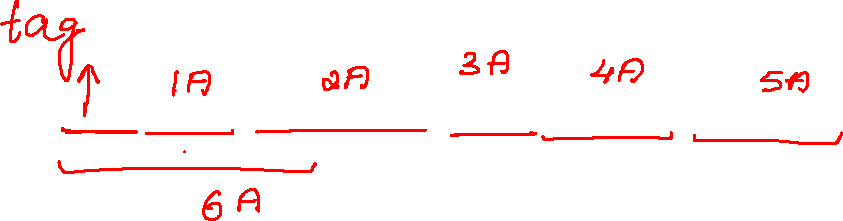 tag
1A 2A 3A 4A 5A
6A